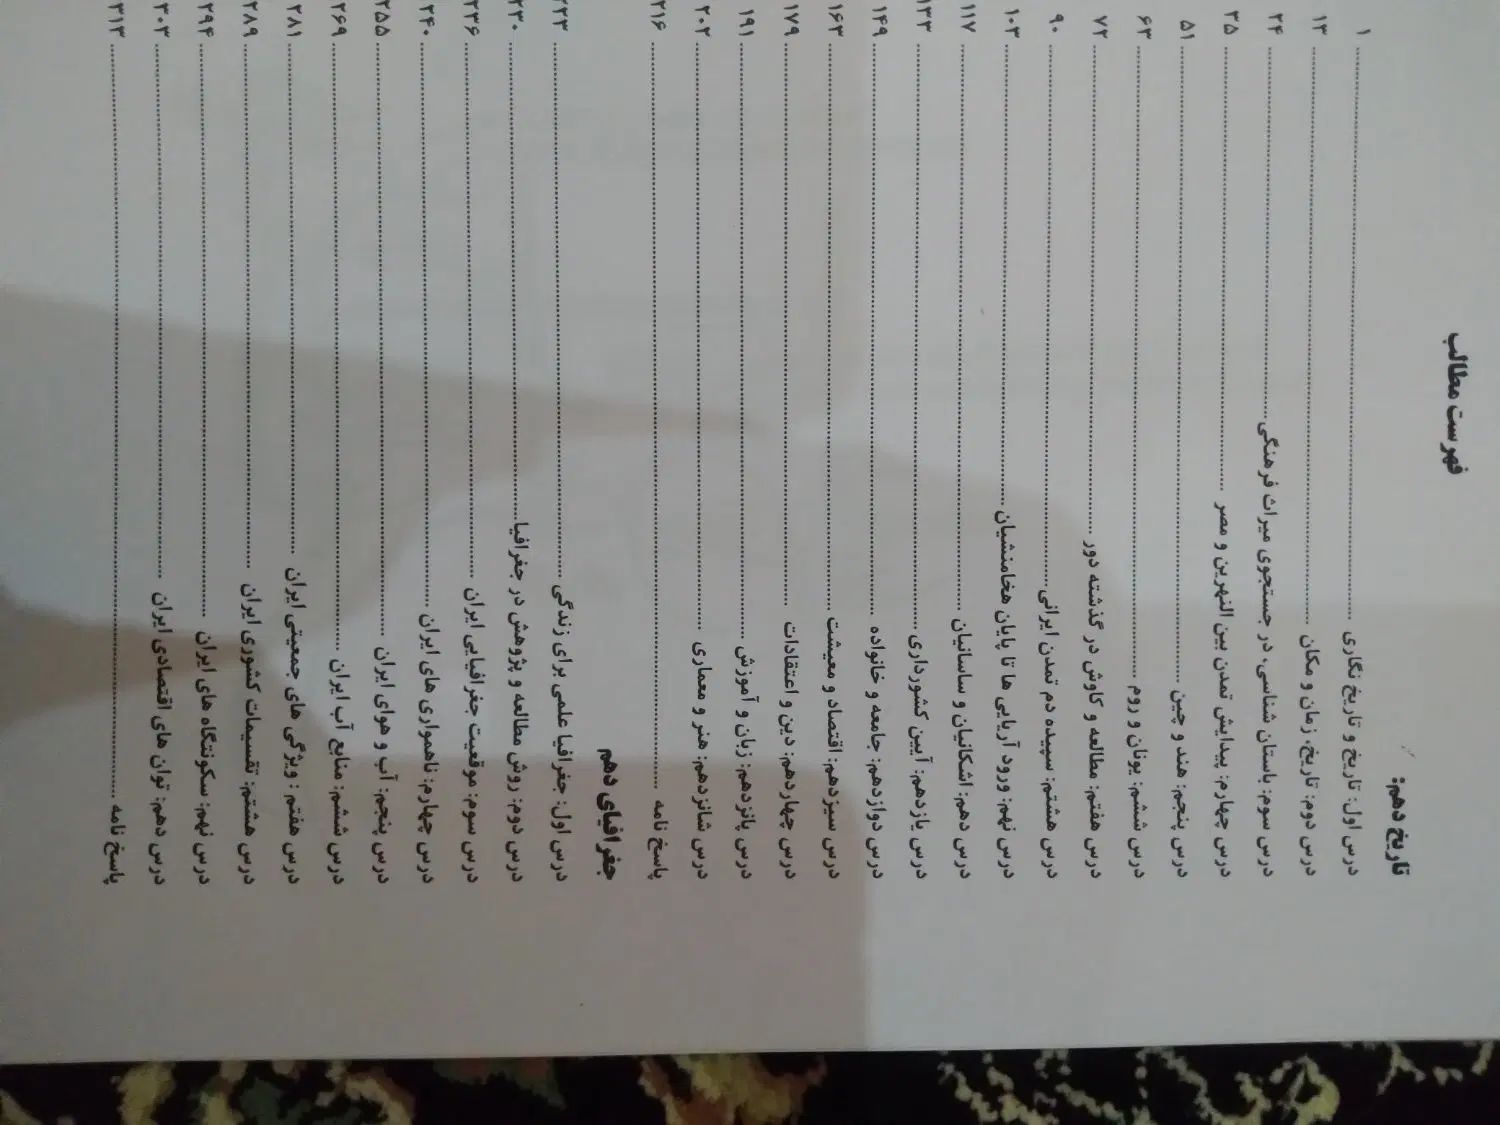 فهرست مطالب
تاریخ دهم:
درس اول: تاریخ و تاریخ نگاری ........ ۱
درس دوم: تاریخ، زمان و مکان ........ ۱۳
درس سوم: باستان شناسی، در جستجوی میراث فرهنگی ........ ۲۴
درس چهارم: پیدایش تمدن بین النهرین و مصر ........ ۳۵
درس پنجم: هند و چین ........ ۵۱
درس ششم: یونان و روم ........ ۶۳
درس هفتم: مطالعه و کاوش در گذشته دور ........ ۷۲
درس هشتم: سپیده دم تمدن ایرانی ........ ۹۰
درس نهم: ورود آریایی ها تا پایان هخامنشیان ........ ۱۰۳
درس دهم: اشکانیان و ساسانیان ........ ۱۱۷
درس یازدهم: آیین کشورداری ........ ۱۳۳
درس دوازدهم: جامعه و خانواده ........ ۱۴۹
درس سیزدهم: اقتصاد و معیشت ........ ۱۶۳
درس چهاردهم: دین و اعتقادات ........ ۱۷۹
درس پانزدهم: زبان و آموزش ........ ۱۹۱
درس شانزدهم: هنر و معماری ........ ۲۰۲
پاسخ نامه ........ ۲۱۶
جغرافیای دهم
درس اول: جغرافیا علمی برای زندگی ........ ۲۲۳
درس دوم: روش مطالعه و پژوهش در جغرافیا ........ ۲۳۰
درس سوم: موقعیت جغرافیایی ایران ........ ۲۳۶
درس چهارم: ناهمواری های ایران ........ ۲۴۰
درس پنجم: آب و هوای ایران ........ ۲۵۵
درس ششم: منابع آب ایران ........ ۲۶۹
درس هفتم : ویژگی های جمعیتی ایران ........ ۲۸۱
درس هشتم: تقسیمات کشوری ایران ........ ۲۸۹
درس نهم: سکونتگاه های ایران ........ ۲۹۴
درس دهم: توان های اقتصادی ایران ........ ۳۰۳
پاسخ نامه ........ ۳۱۳